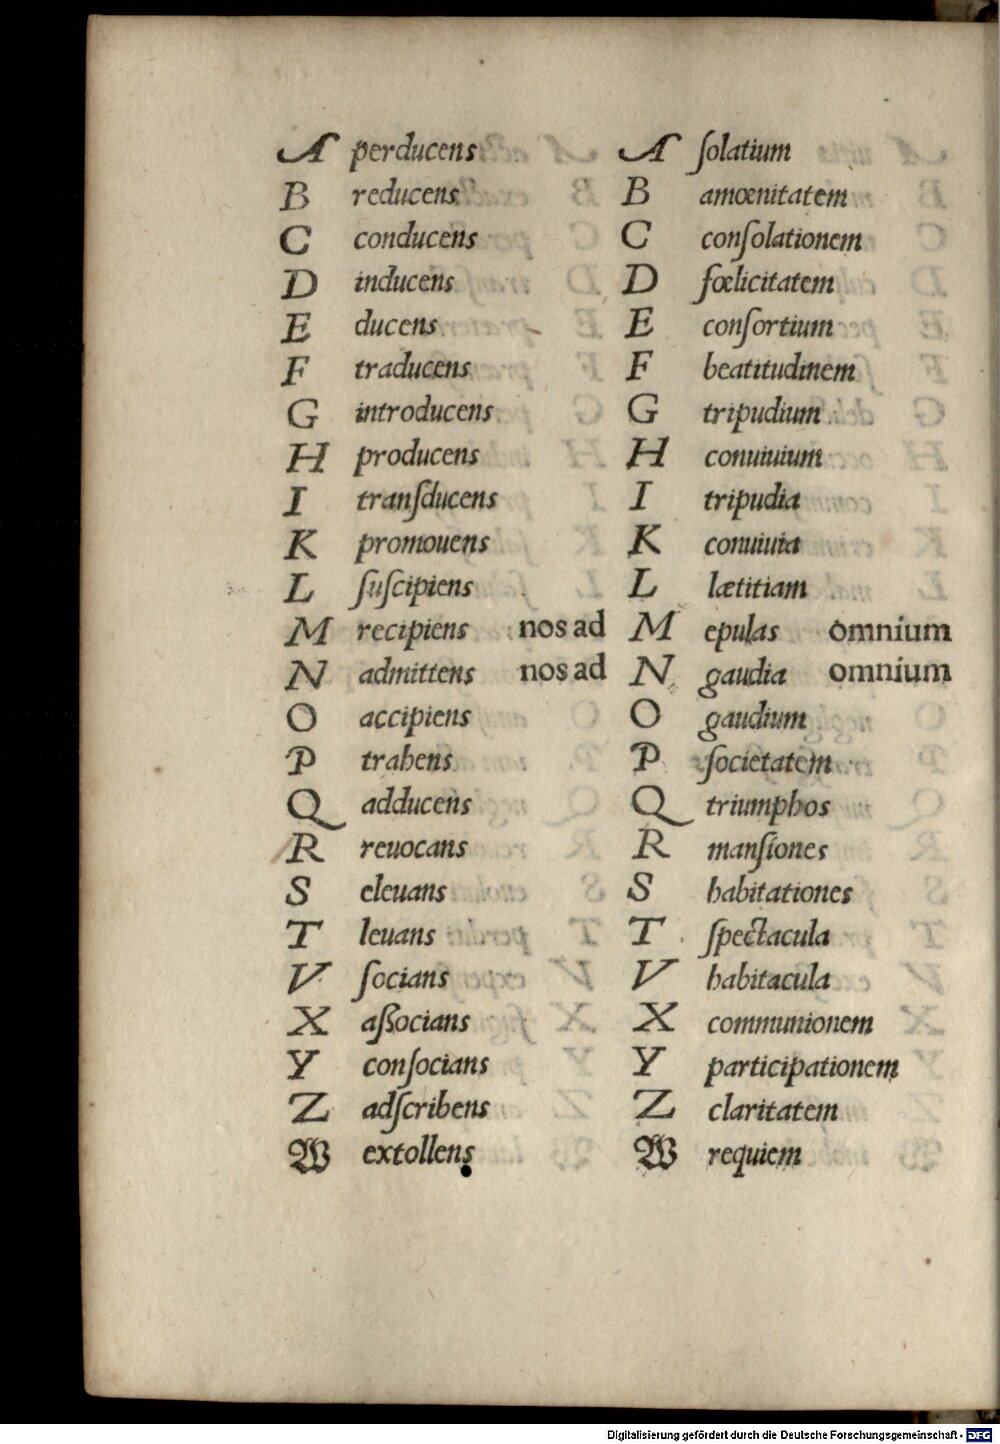 A perducens A ſolatium
B reducens B amœnitatem
C conducens C conſolationem
D inducens D fœlicitatem
E ducens E conſortium
F traducens F beatitudinem
G introducens G tripudium
H producens H conuiuium
I tranſducens I tripudia
K promouens K conuiuia
L ſuſcipiens L lætitiam
M recipiens nos ad M epulas omnium
N admittens nos ad N gaudia omnium
O accipiens O gaudium
P trahens P ſocietatem
Q adducens Q triumphos
R reuocans R manſiones
S eleuans S habitationes
T leuans T ſpectacula
V ſocians V habitacula
X aſſocians X communionem
Y conſocians Y participationem
Z adſcribens Z claritatem
W extollens W requiem
Digitalisierung gefördert durch die Deutsche Forschungsgemeinschaft - DFG